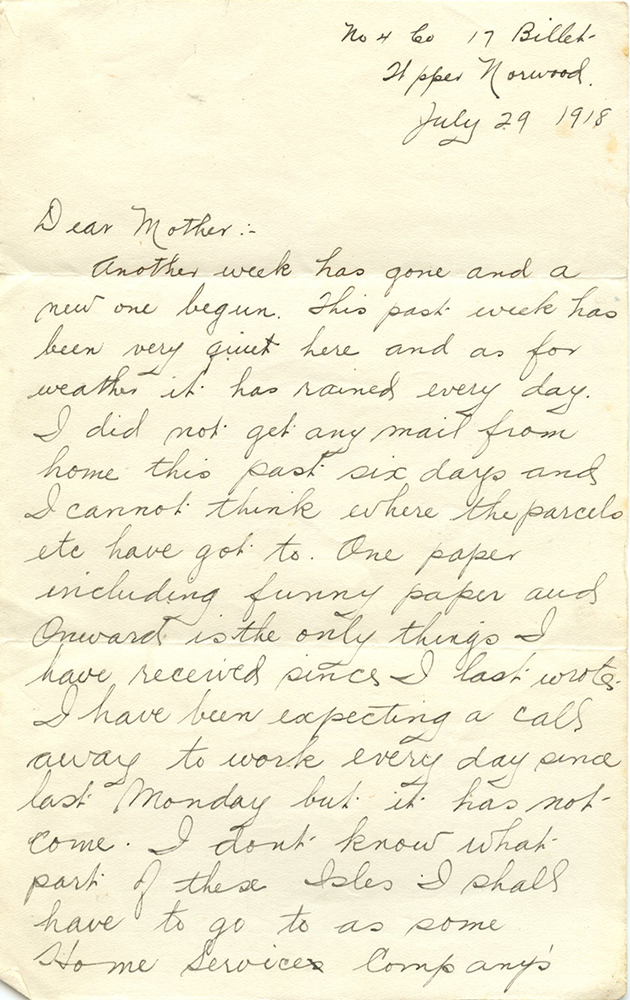 No 4 Co 17 Billet
Upper Norwood.
July 29 1918
Dear Mother:-
Another week has gone and a
new one begun. This past week has
been very quiet here and as for
weather it has rained every day.
I did not get any mail from
home this past six days and
I cannot think where the parcels
etc have got to. One paper
including funny paper and
Onward is the only things I
have received since I last wrote.
I have been expecting a call
away to work every day since
last Monday but it has not
come. I dont know what
part of these Isles I shall
have to go to as some
Home Services Company's